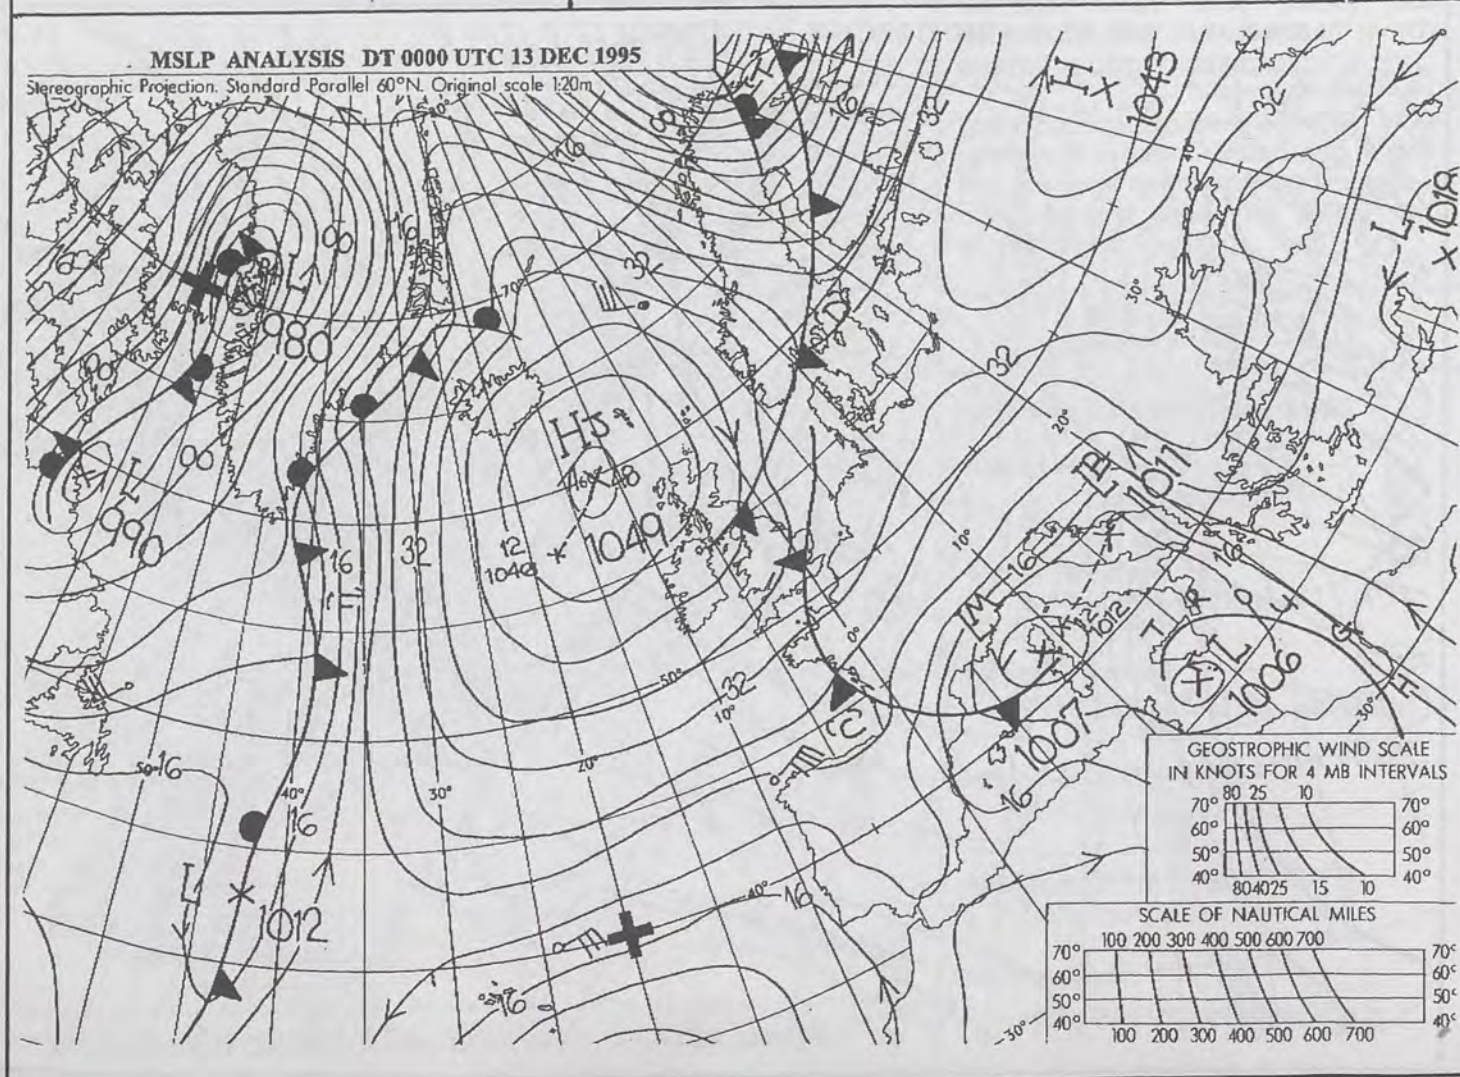 MSLP ANALYSIS DT 0000 UTC 13 DEC 1995
Stereographic Projection. Standard Parallel 60°N. Original scale 1:20m
H
1043
L
1018
L
980
L
990
H
1049
12
1040
48
L
1012
B
1011
M
L
1007
1012
TROUGH
L
1006
C
D
32
32
32
32
32
32
16
16
16
16
16
16
16
16
16
16
00
00
00
70°
60°
50°
50°
40°
40°
40°
30°
30°
30°
30°
20°
20°
10°
10°
0°
GEOSTROPHIC WIND SCALE
IN KNOTS FOR 4 MB INTERVALS
80 25 10
70° 70°
60° 60°
50° 50°
40° 40°
80 40 25 15 10
SCALE OF NAUTICAL MILES
100 200 300 400 500 600 700
70° 70°
60° 60°
50° 50°
40° 40°
100 200 300 400 500 600 700